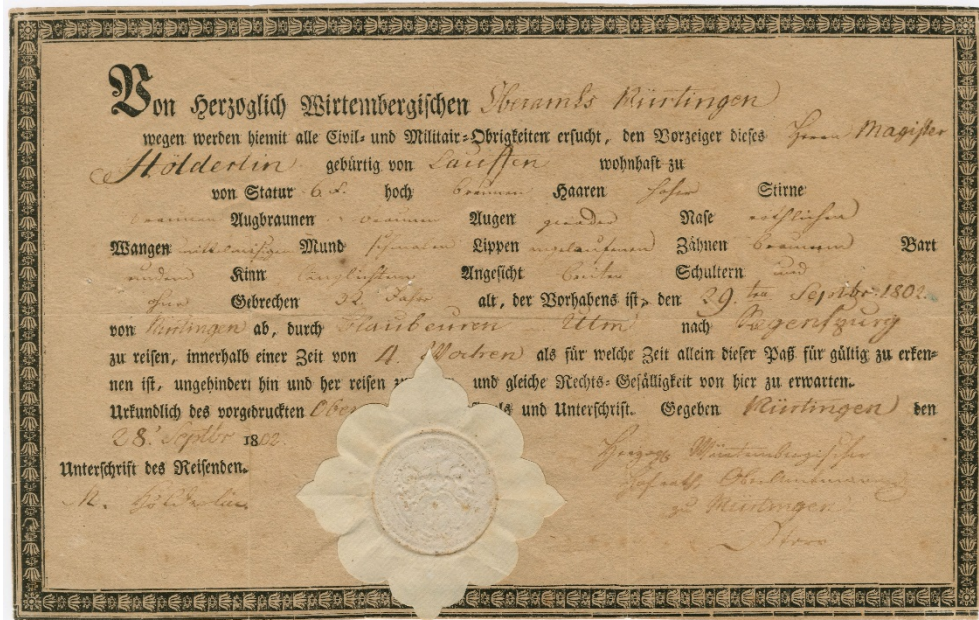 Von Herzoglich Wirtembergischen Oberamts Nürtingen
wegen werden hiemit alle Civil- und Militair-Obrigkeiten ersucht, den Vorzeiger dieses Herrn Magister
Hölderlin gebürtig von Lauffen wohnhaft zu
von Statur 6 F. hoch braunen Haaren hoher Stirne
braunen Augbraunen braunen Augen grader Nase röthlichen
Wangen mittelmäsigen Mund schmalen Lippen angelaufenen Zähnen braunem Bart
rundem Kinn länglichtem Angesicht breiten Schultern und
ohne Gebrechen 32. Jahr alt, der Vorhabens ist, den 29.ten Septbr. 1802.
von Nürtingen ab, durch Blaubeuren Ulm nach Regenspurg
zu reisen, innerhalb einer Zeit von 4. Wochen als für welche Zeit allein dieser Paß für gültig zu erken-
nen ist, ungehindert hin und her reisen und gleiche Rechts-Gefälligkeit von hier zu erwarten.
Urkundlich des vorgedruckten und Unterschrift. Gegeben Nürtingen den
28. Septbr 1802.
Herzogl. Würtembergischer
Unterschrift des Reisenden.
Hofrath Oberamtmann
M. Hölderlin
zu Nürtingen